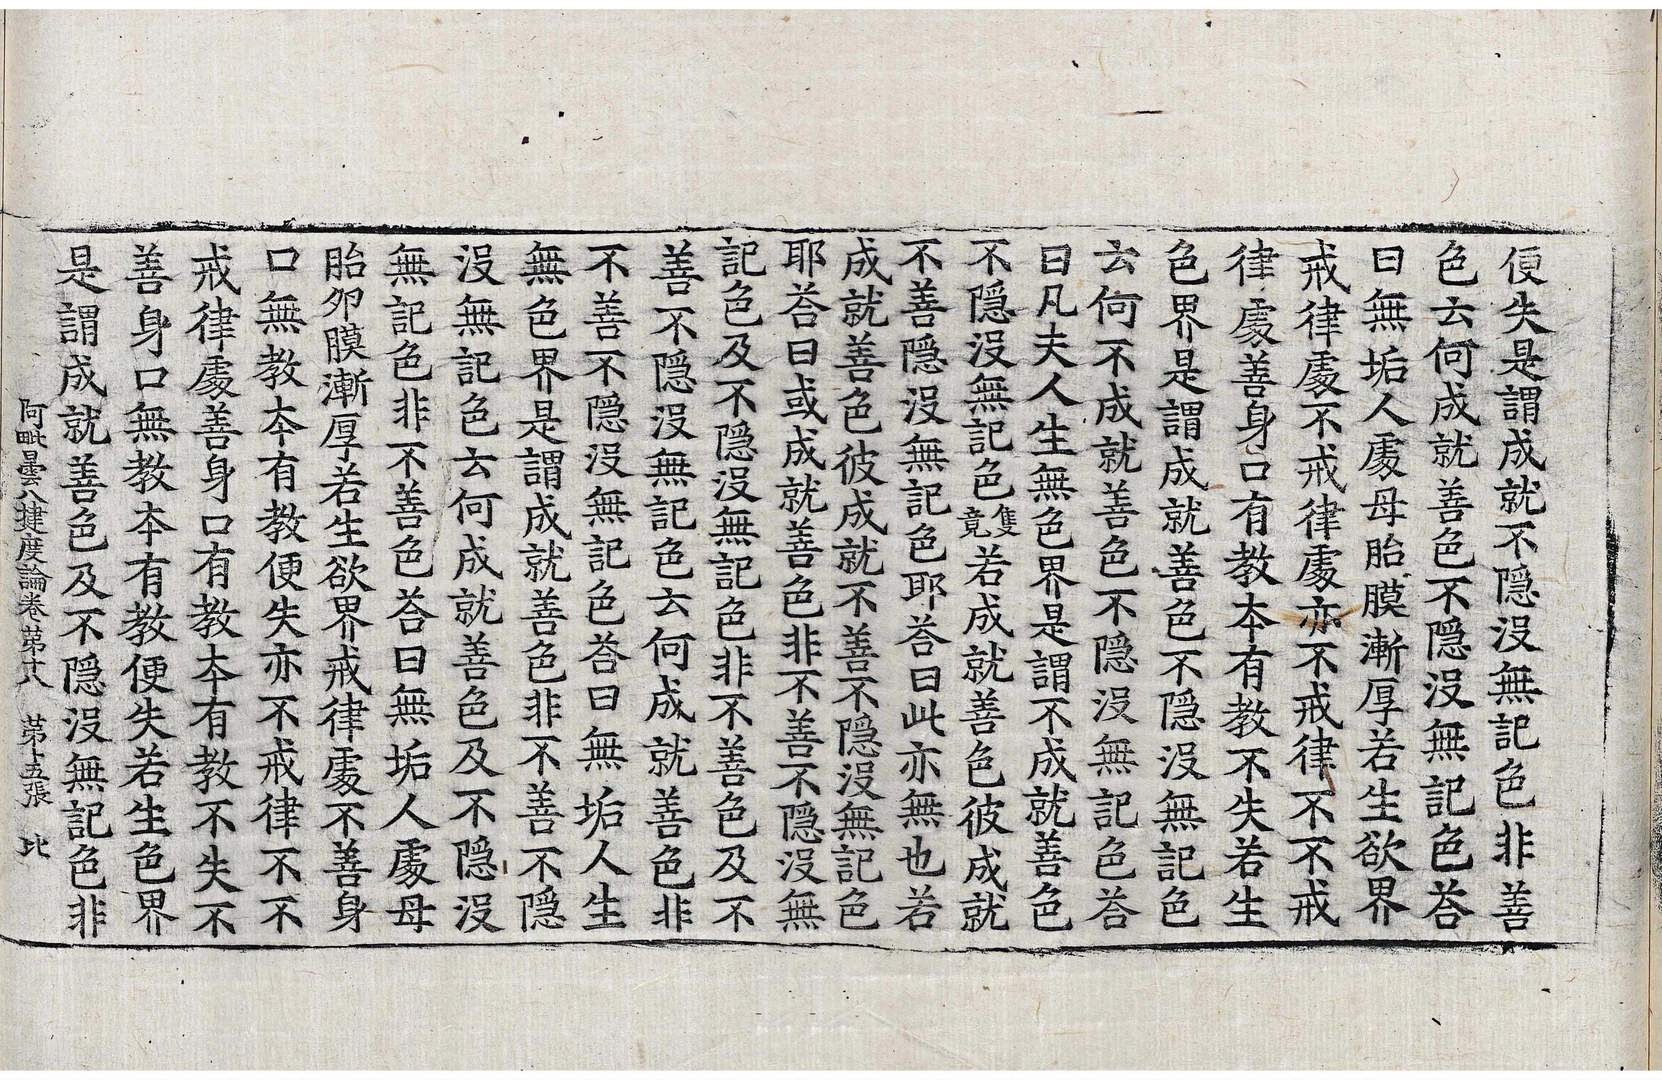 便失是謂成就不隱沒無記色非善
色云何成就善色不隱沒無記色荅
曰無垢人處母胎膜漸厚若生欲界
戒律處不戒律處亦不戒律不不戒
律處善身口有教本有教不失若生
色界是謂成就善色不隱沒無記色
云何不成就善色不隱沒無記色荅
曰凡夫人生無色界是謂不成就善色
不隱沒無記色隻竟若成就善色彼成就
不善隱沒無記色耶荅曰此亦無也若
成就善色彼成就不善不隱沒無記色
耶荅曰或成就善色非不善不隱沒無
記色及不隱沒無記色非不善色及不
善不隱沒無記色云何成就善色非
不善不隱沒無記色荅曰無垢人生
無色界是謂成就善色非不善不隱
沒無記色云何成就善色及不隱沒
無記色非不善色荅曰無垢人處母
胎卵膜漸厚若生欲界戒律處不善身
口無教本有教便失亦不戒律不不
戒律處善身口有教本有教不失不
善身口無教本有教便失若生色界
是謂成就善色及不隱沒無記色非
阿毗曇八揵度論卷第十八 第十五張 比